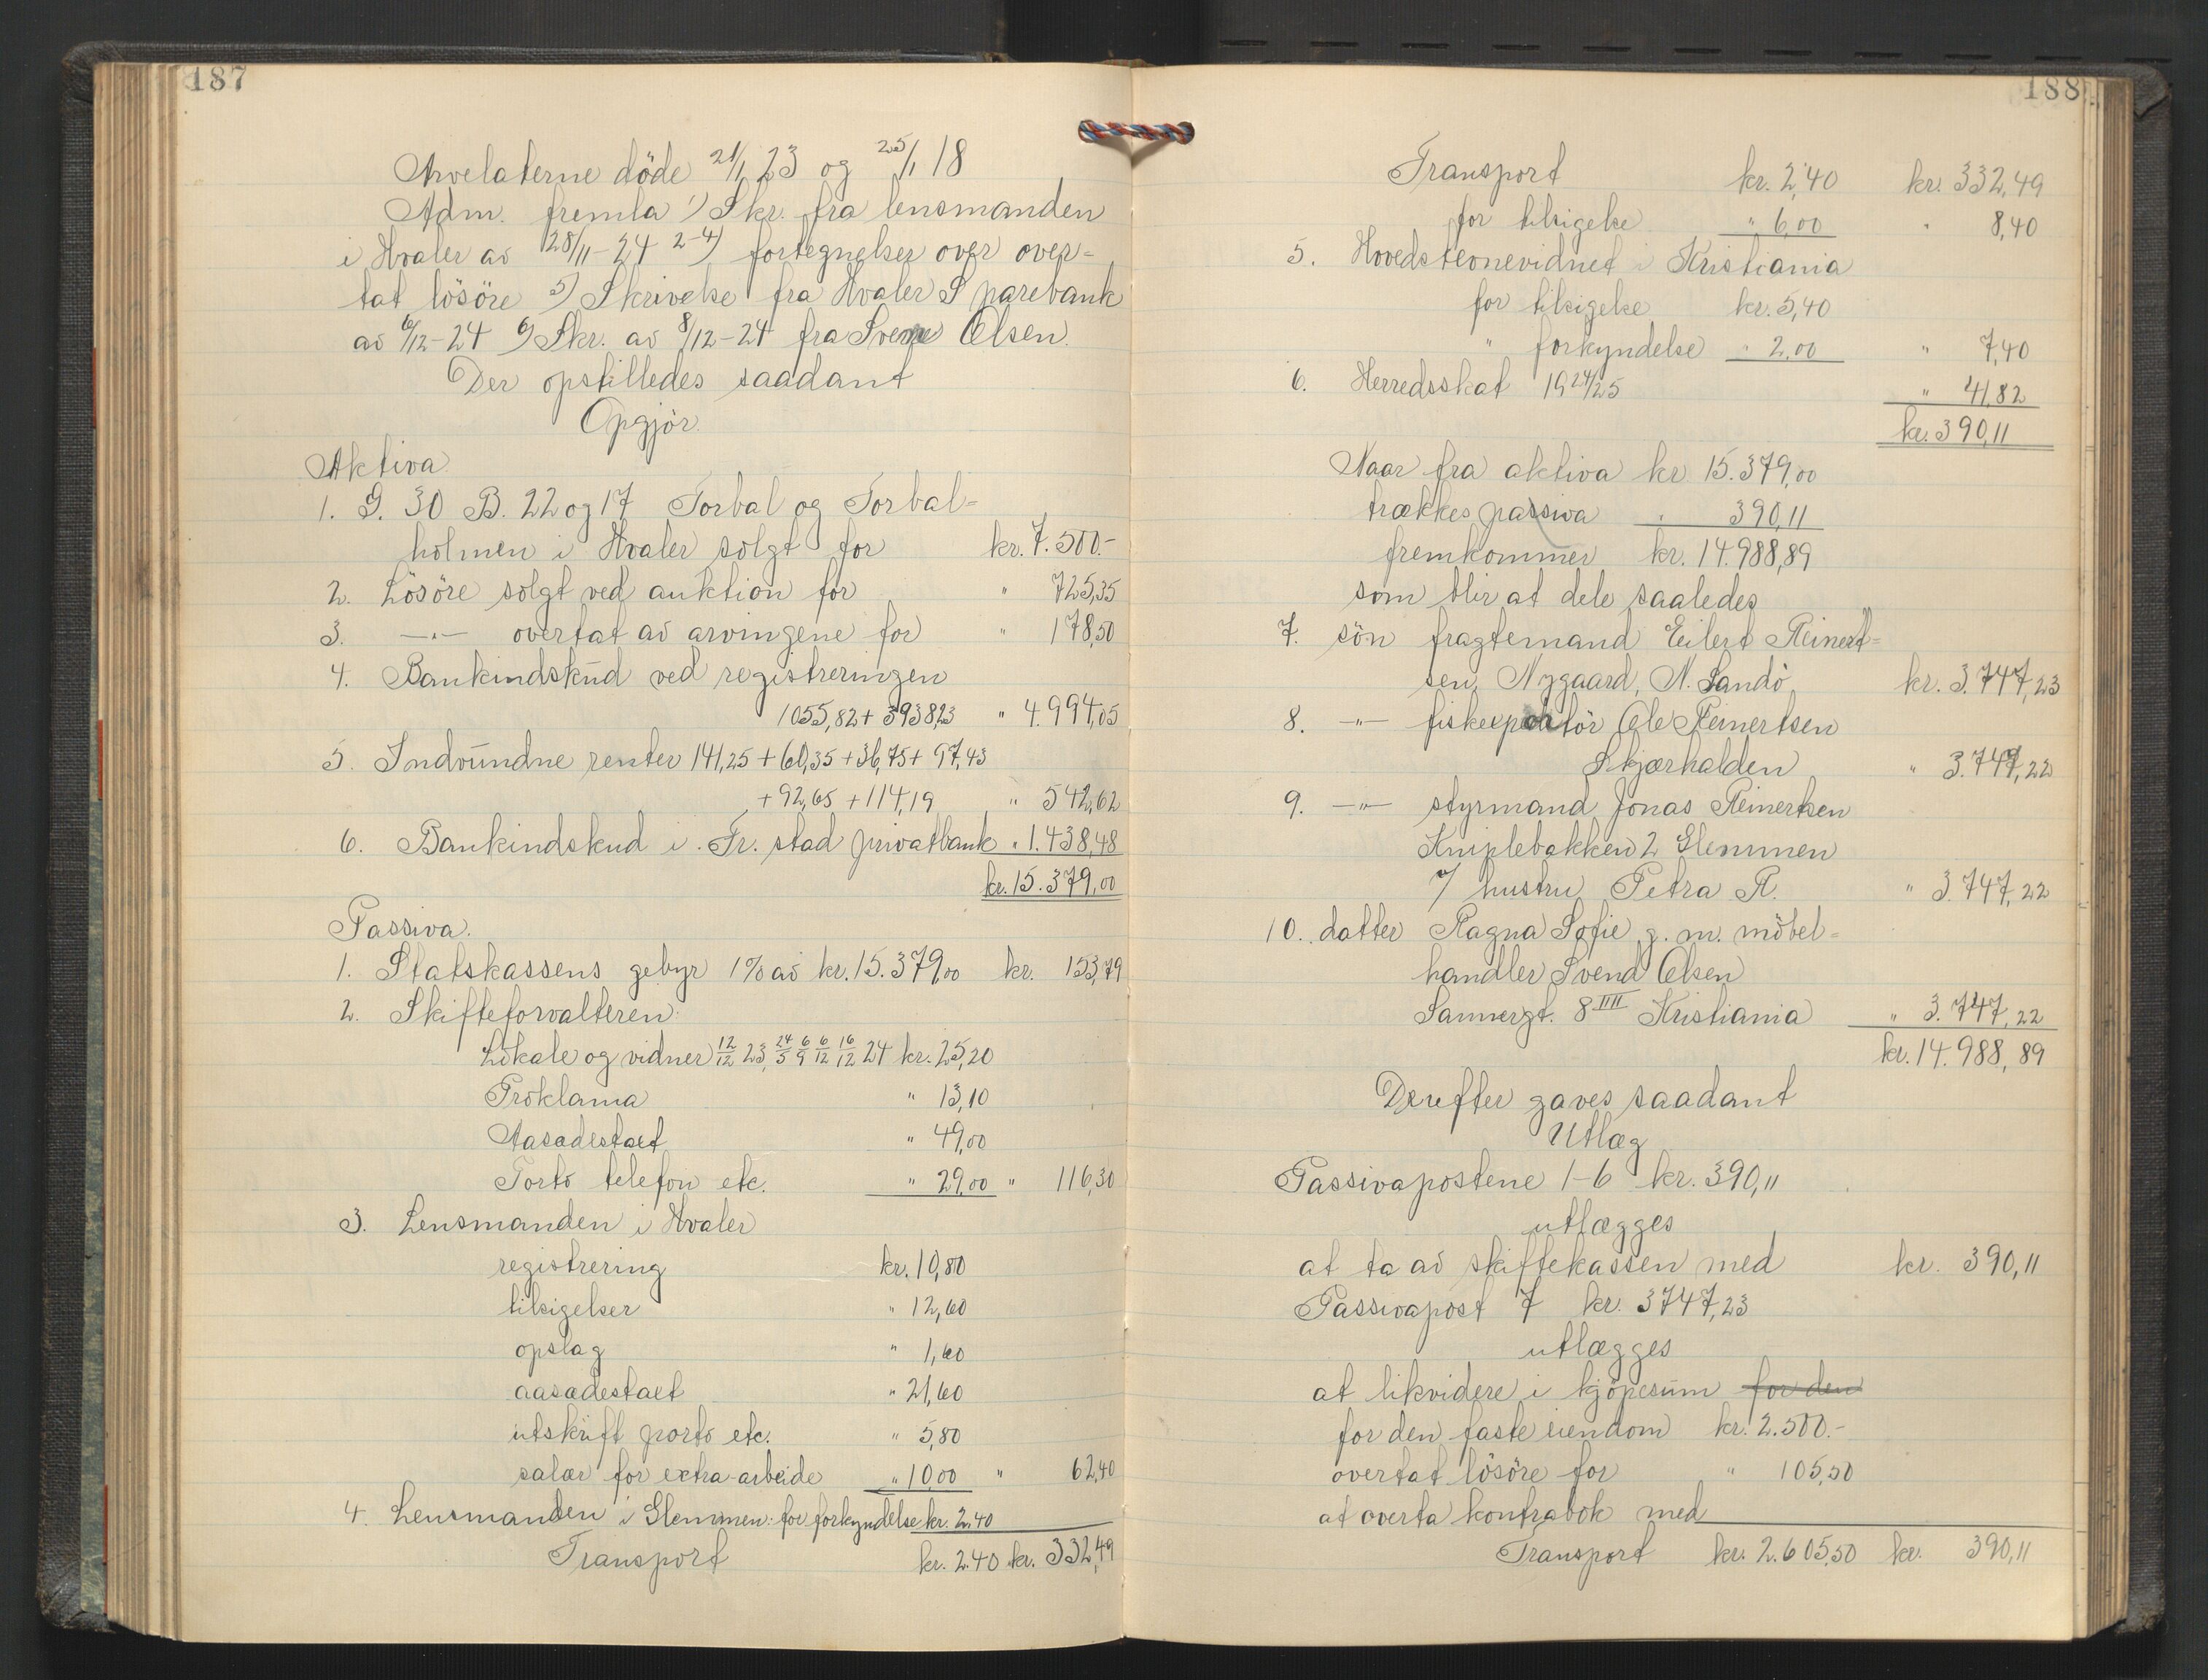 187
Arvelaterne döde 21/1 23 og 25/1 18
Adm. fremla 1) Skr. fra lensmanden
i Hvaler av 28/11-24 2-4) fortegnelser over over-
tat lösöre 5) Skrivelse fra Hvaler Sparebank
av 6/12-24 6) Skr. av 8/12-24 fra Svend Olsen.
Der opstilledes saadant
Opgjör.
Aktiva.
1. G. 30 B. 22 og 17 Torbal og Torbal-
holmen i Hvaler solgt for kr. 7.500.-
2. Lösöre solgt ved auktion for " 725,35
3. -"- overtat av arvingene for " 178,50
4. Bankindskud ved registreringen
1055,82 + 3938,23 " 4.994,05
5. Indvundne renter 141,25 + 60,35 + 36,75 + 97,43
+ 92,65 + 114,19 " 542,62
6. Bankindskud i Fr. stad privatbank " 1.438,48
kr. 15.379,00
Passiva.
1. Statskassens gebyr 1% av kr. 15.379,00 kr. 153,79
2. Skifteforvalteren:
Lokale og vidner 12/12 23, 24/5 6/9 6/12 16/12 24 kr. 25,20
Proklama " 13,10
Aasædestaet " 49,00
Porto telefon etc. " 29,00 " 116,30
3. Lensmanden i Hvaler
registrering kr. 10,80
tilsigelser " 12,60
opslag " 1,60
aasædestaet " 21,60
utskrift porto etc. " 5,80
salær for extra-arbeide " 10,00 " 62,40
4. Lensmanden i Glemmen: for forkyndelse kr. 2.40
Transport kr. 2.40 kr. 332,49
188
Transport kr. 2,40 kr. 332,49
for tilsigelse " 6,00 " 8,40
5. Hovedstevnevidnet i Kristiania
for tilsigelse kr. 5,40
" forkyndelse " 2,00 " 7,40
6. Herredsskat 1924/25 " 41,82
kr. 390,11
Naar fra aktiva kr. 15.379,00
trækkes passiva " 390,11
fremkommer kr. 14.988,89
som blir at dele saaledes
7. sön fragtemand Eilert Reinert-
sen, Nygaard, N. Sandö kr. 3.747,23
8. -"- fiskeexportör Ole Reinertsen
Skjærhalden " 3.747,22
9. -"- styrmand Jonas Reinertsen
Kniplebakken 2 Glemmen
v/ hustru Petra R. " 3.747,22
10. datter Ragna Sofie g. m. möbel-
handler Svend Olsen
Sannergt. 8 IIII Kristiania " 3.747,22
kr. 14.988,89
Derefter gaves saadant
Utlæg
Passivapostene 1-6 kr. 390,11
utlægges
at ta av skiftekassen med kr. 390,11
Passivapost 7 kr. 3747,23
utlægges
at likvidere i kjöpesum for den
for den faste eiendom kr. 2.500.-
overtat lösöre for " 105,50
at overta kontrabok med
Transport kr. 2.605,50 kr. 390,11